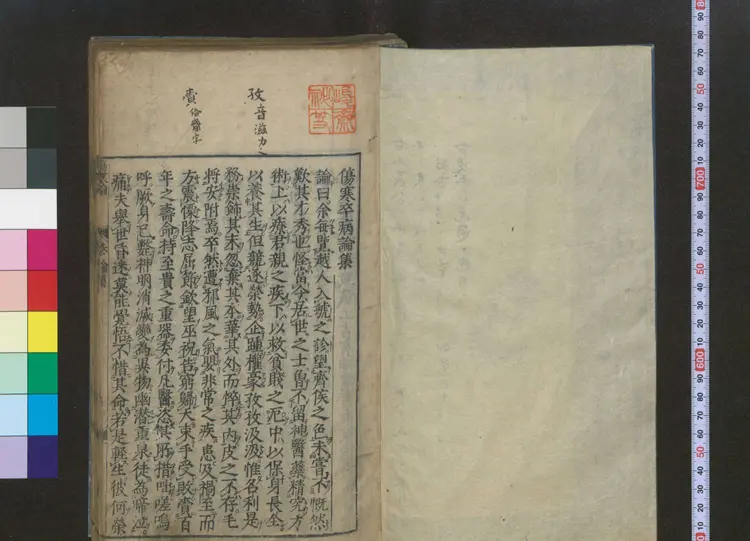 孜音滋
賷俗齎字
傷寒卒病論集
論曰余每覽越人入虢之診望齊侯之色未嘗不慨然
歎其才秀也怪當今居世之士曾不留神醫藥精究方
術上以療君親之疾下以救貧賤之厄中以保身長全
以養其生但競逐榮勢企踵權豪孜孜汲汲惟名利是
務崇飾其末忽棄其本華其外而悴其内皮之不存毛
將安附焉卒然遭邪風之氣嬰非常之疾患及禍至而
方震慄降志屈節欽望巫祝告窮歸天束手受敗賷百
年之壽命持至貴之重器委付凡醫恣其所措咄嗟嗚
呼厥身已斃神明消滅變為異物幽潛重泉徒為啼泣
痛夫舉世昏迷莫能覺悟不惜其命若是輕生彼何榮
700
600